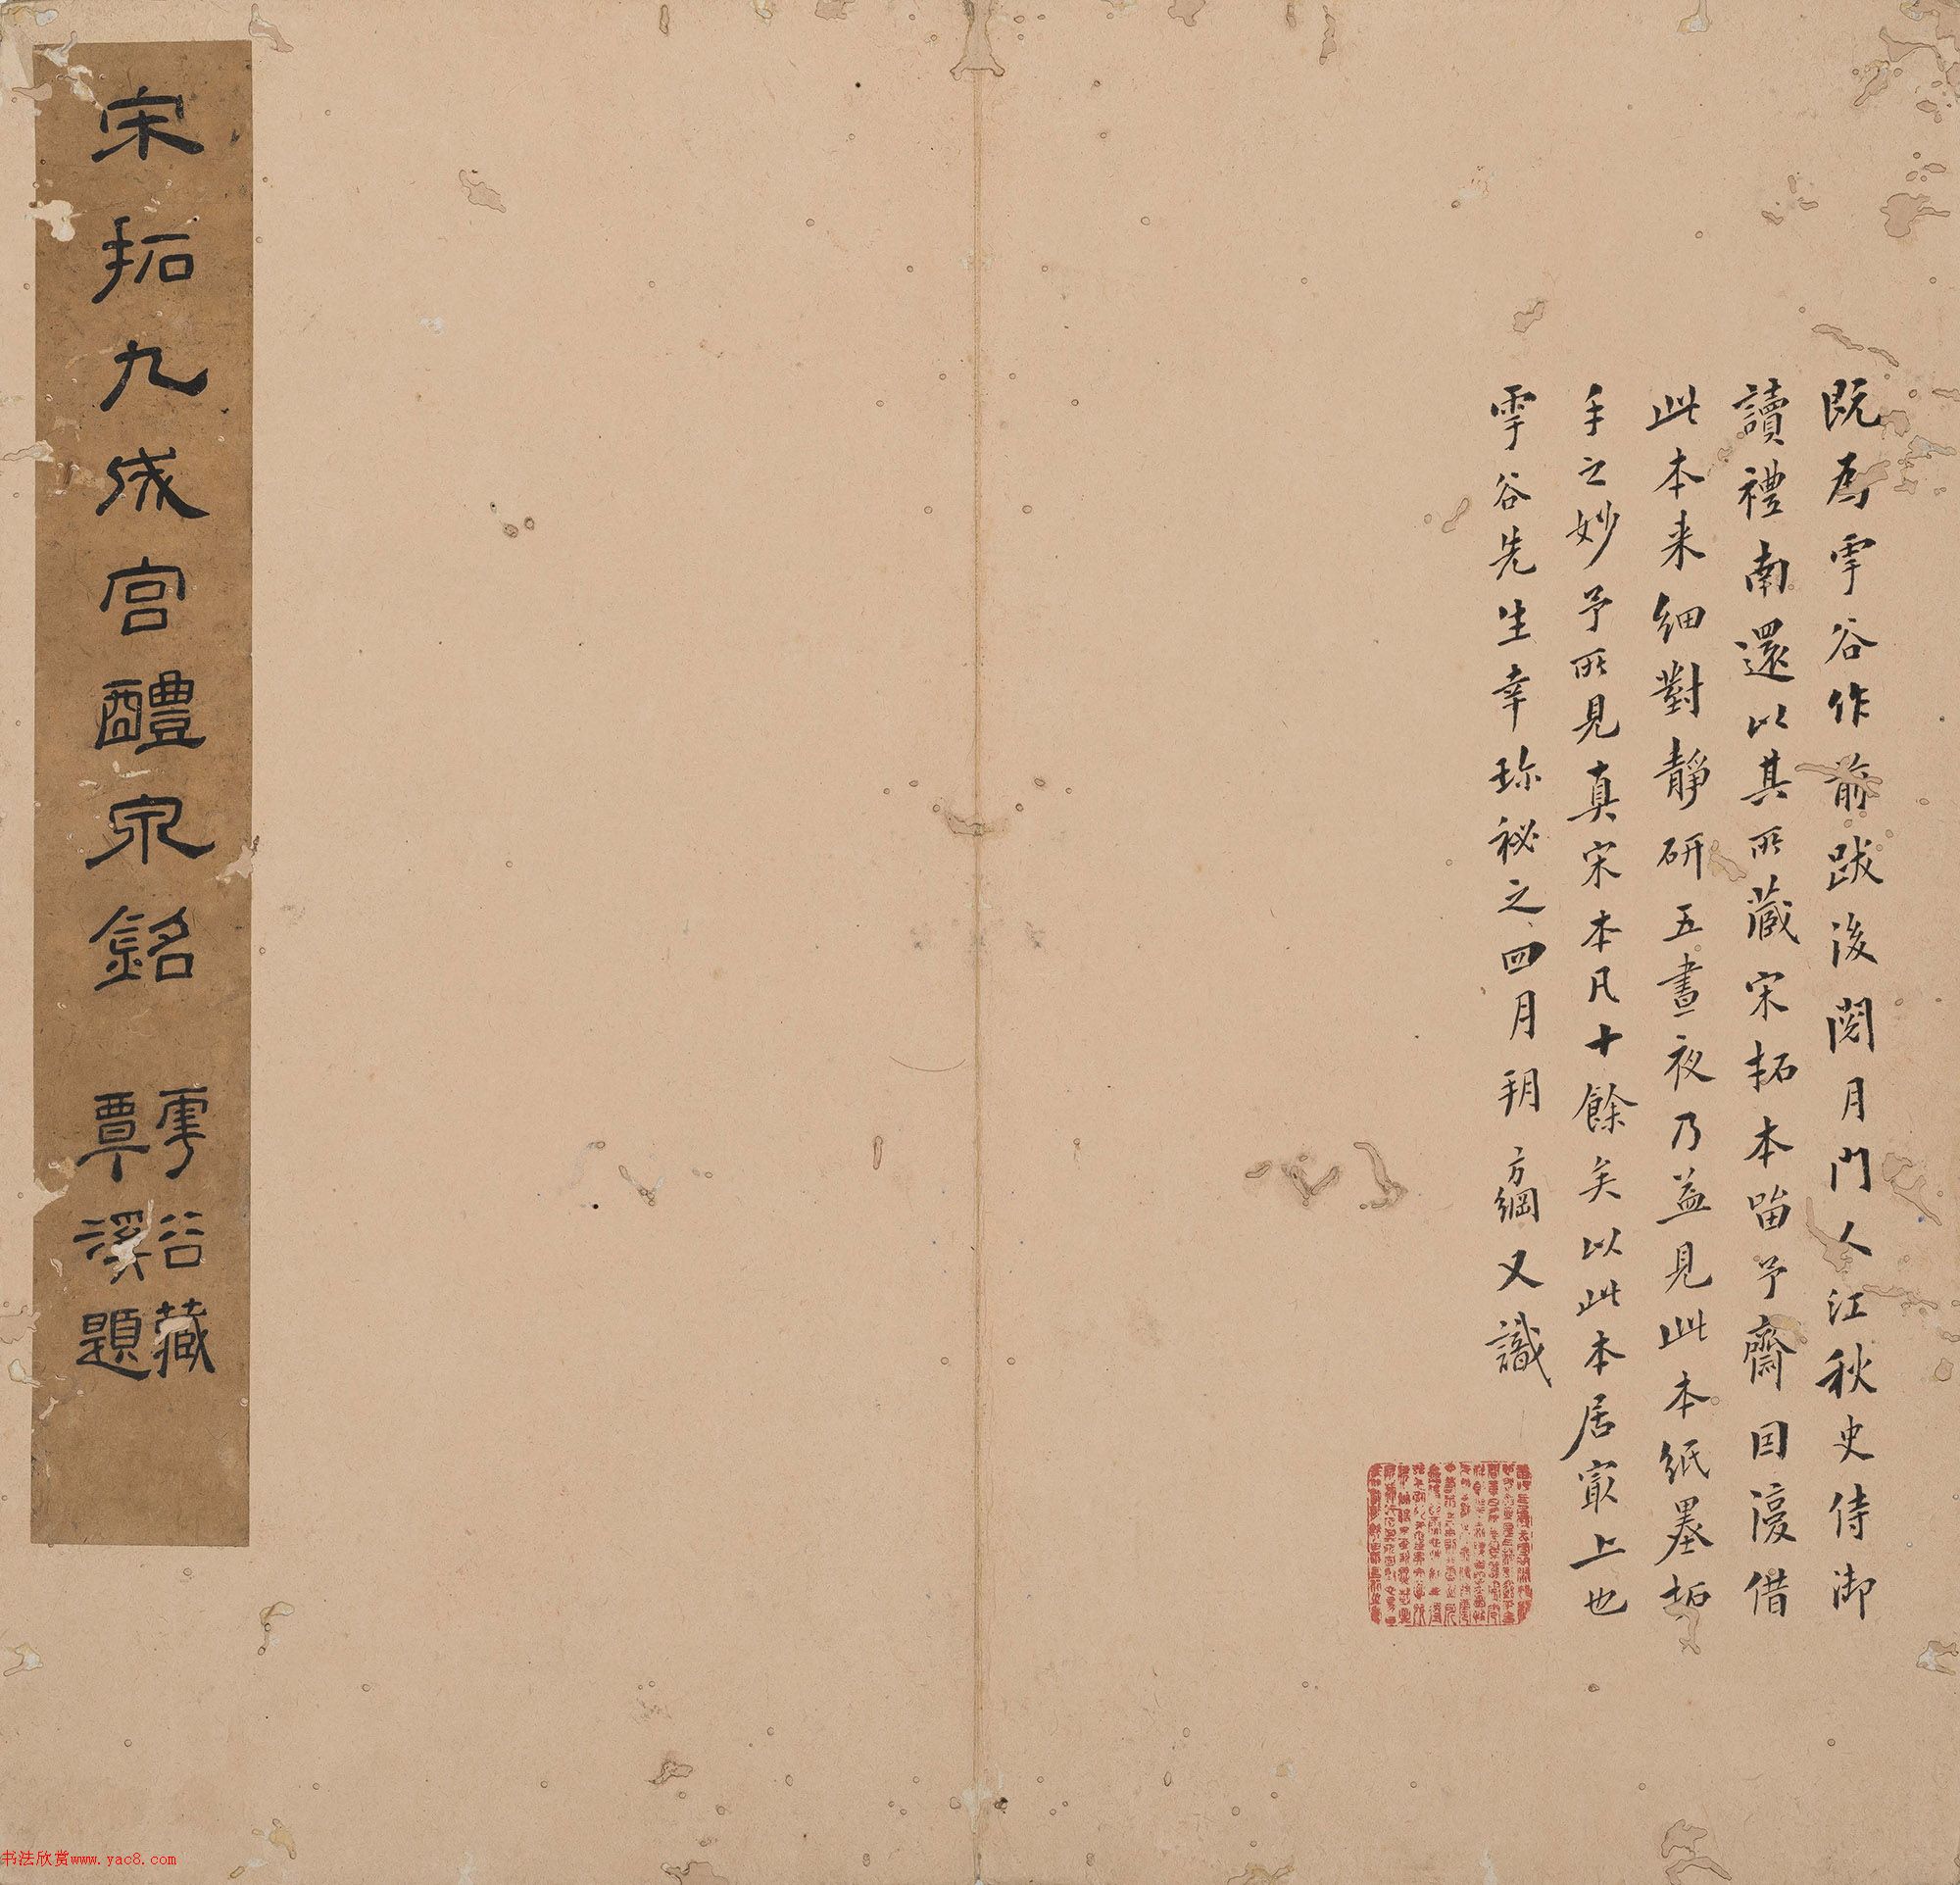 既為雩谷作前跋後閱月門人江秋史侍御
讀禮南還以其所藏宋拓本留予齋因復借
此本来細對靜研五晝夜乃益見此本紙墨拓
手之妙予所見真宋本凡十餘矣以此本居冣上也
雩谷先生幸珎祕之四月朔方綱又識
宋拓九成宮醴泉銘
雩谷藏
覃溪題
书法欣赏www.yac8.com